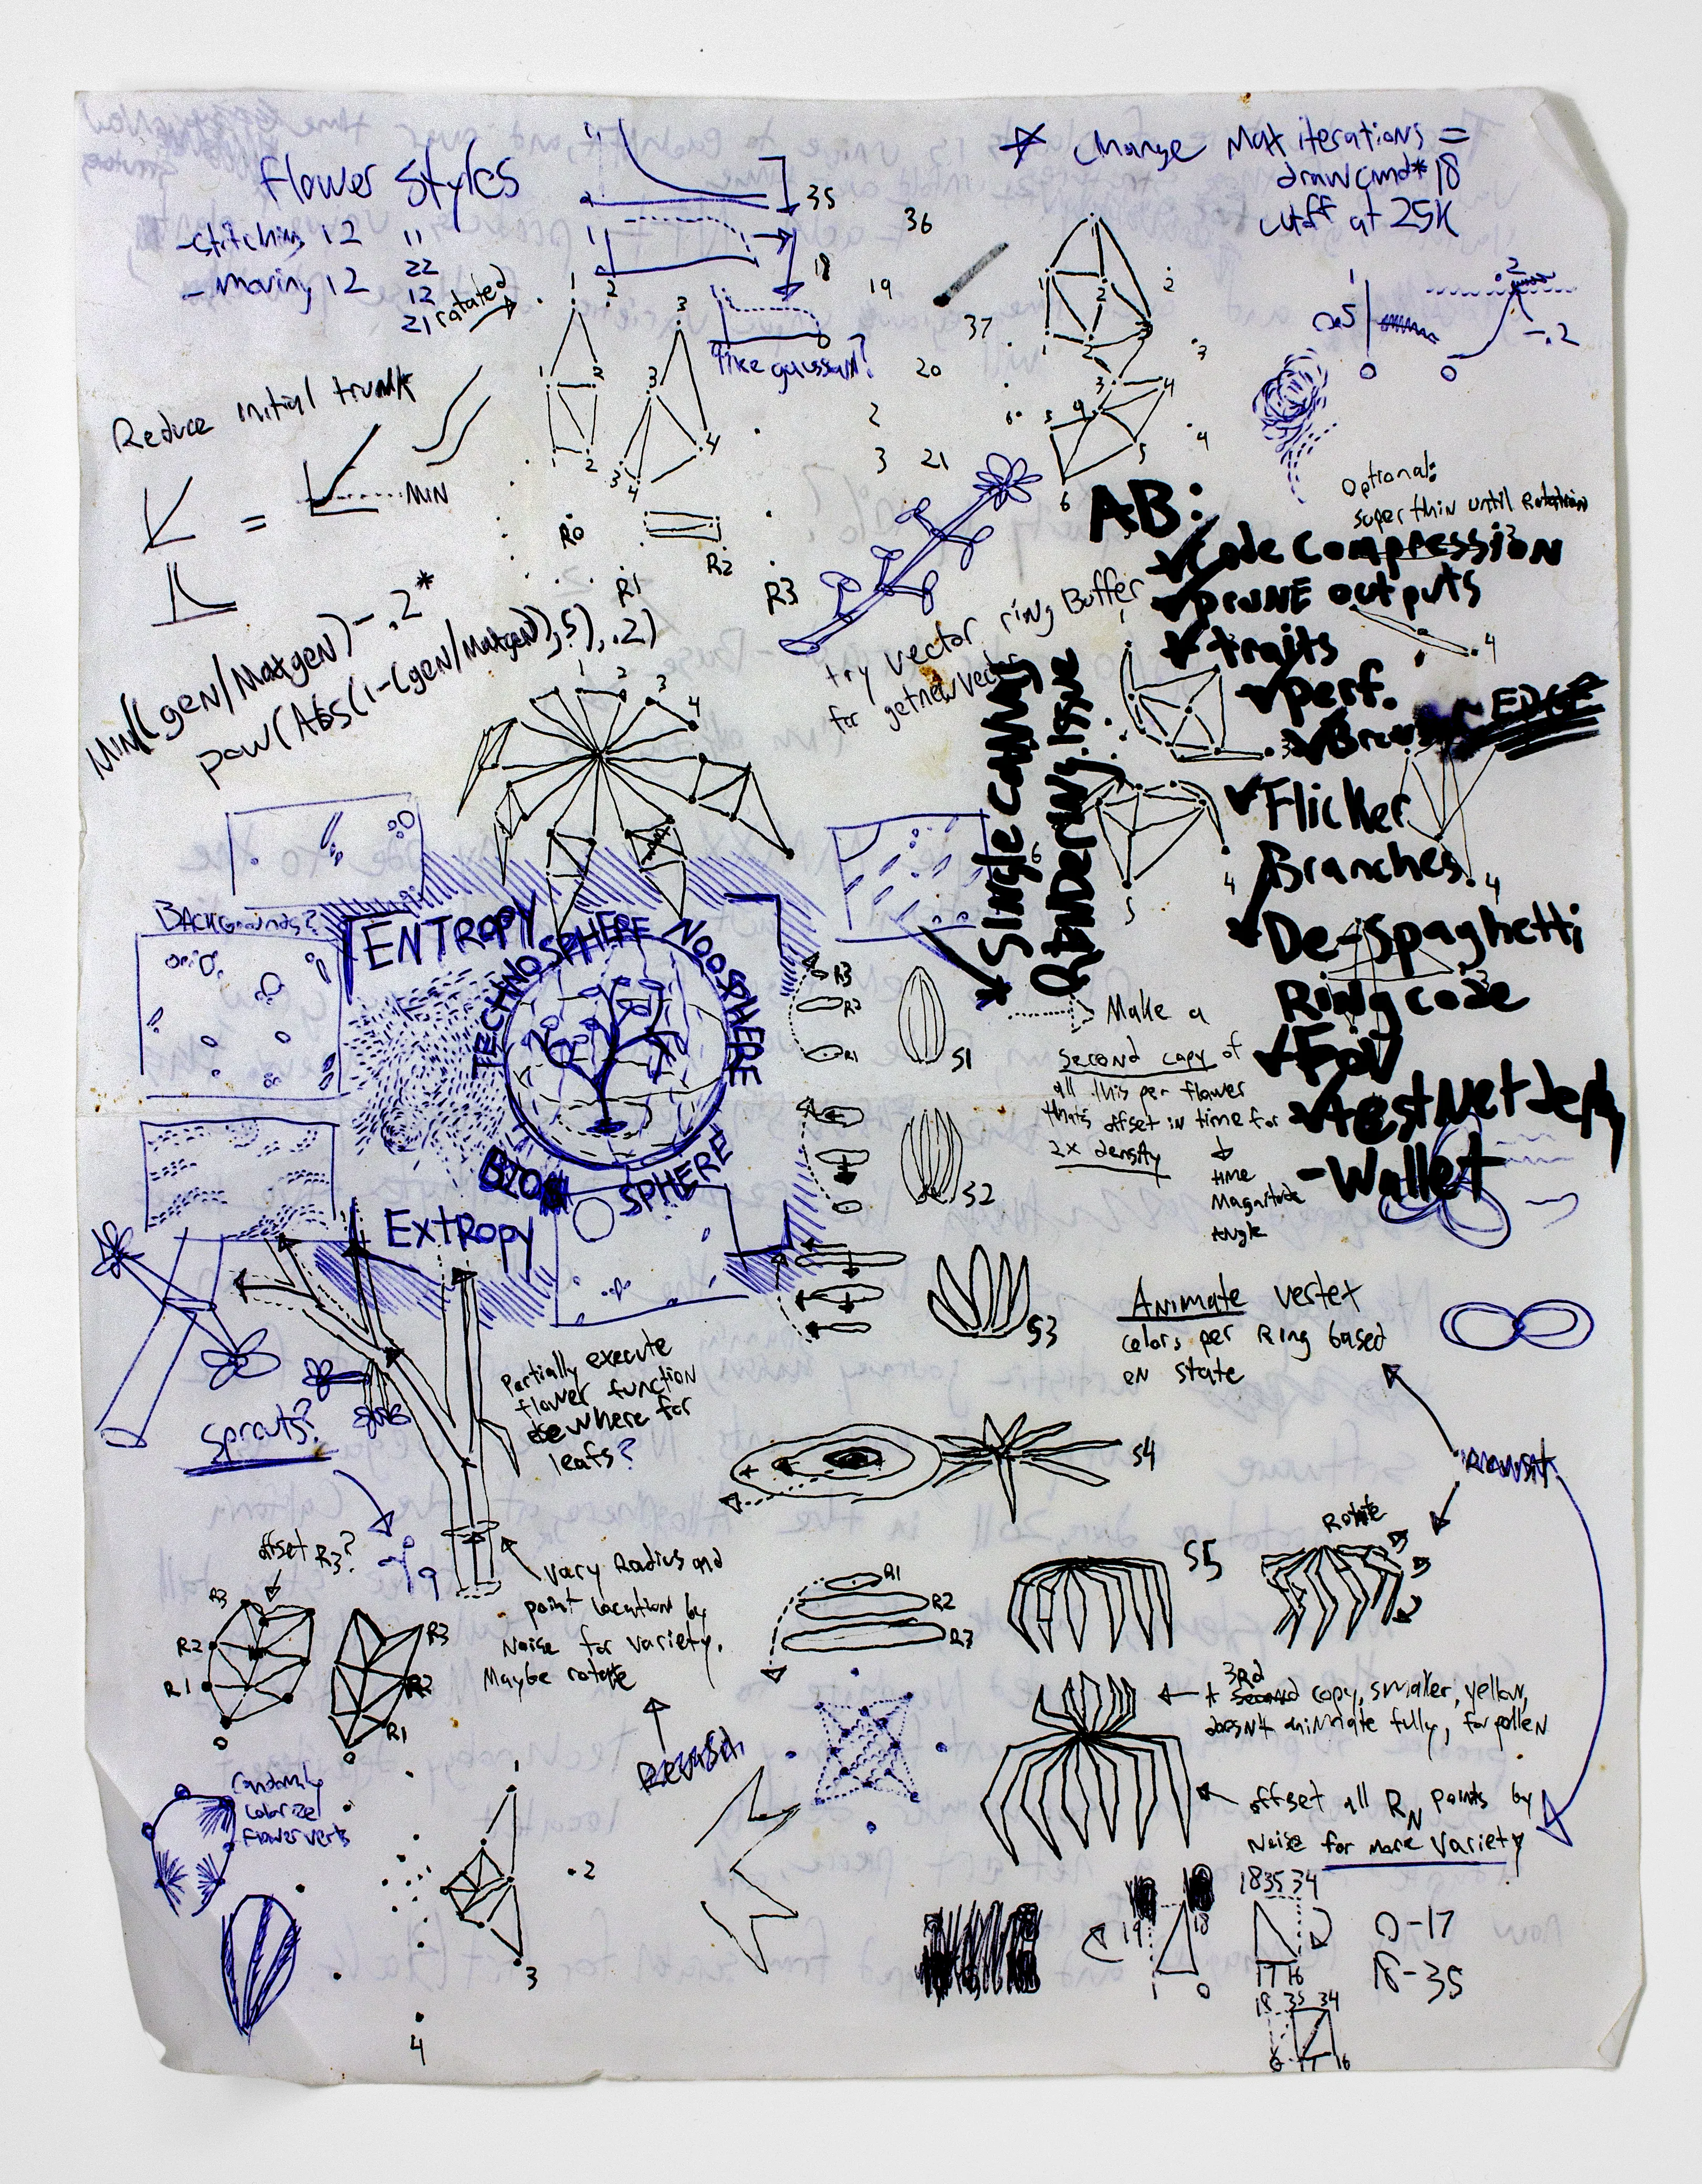 Flower Styles
-stitching 12 11
- Moving 12 22
12
21
rotated
1
35
1
18
like gaussian?
36
19
37
20
2
3 21
* Change Max iterations =
drawcmd * 18
cutoff at 25K
1
0
0
.2
-.2
Reduce initial trunk
= MIN
R0
R1
R2
R3
MIN((gen/Maxgen)-.2*
pow(Abs(1-(gen/Maxgen)),5),.2)
try vector ring Buffer
for getnewVector
Optional:
super thin until
AB:
Code Compression
PRUNE outputs
traits
Perf.
EDGE
Flicker
Branches
De-Spaghetti
Ring code
FOV
testNet deploy
-Wallet
Single Canvas
Rendering Issue
BACKgrounds?
ENTROPY
TECHNOSPHERE
NOOSPHERE
BIOSPHERE
Extropy
R3
R2
R1
S1
S2
S3
S4
S5
Make a
second copy of
all this per flower
thats offset in time for
2x density
time
Magnitude
Angle
Animate vertex
colors per Ring based
on state
Partially execute
flower function
elsewhere for
leafs?
Sprouts?
offset R3?
R3
R2
R1
0
R3
R2
R1
0
Vary Radius and
point location by
Noise for variety.
Maybe rotate
R1
R2
R3
Rotate
+ 3Rd copy, smaller, yellow,
doesn't animate fully, for pollen
offset all RN points by
Noise for more variety
randomly
colorize
flower verts
1
2
3
4
19 18
1 0
18 35 34
17 16
0-17
18-35
18 35 34
0 17 16